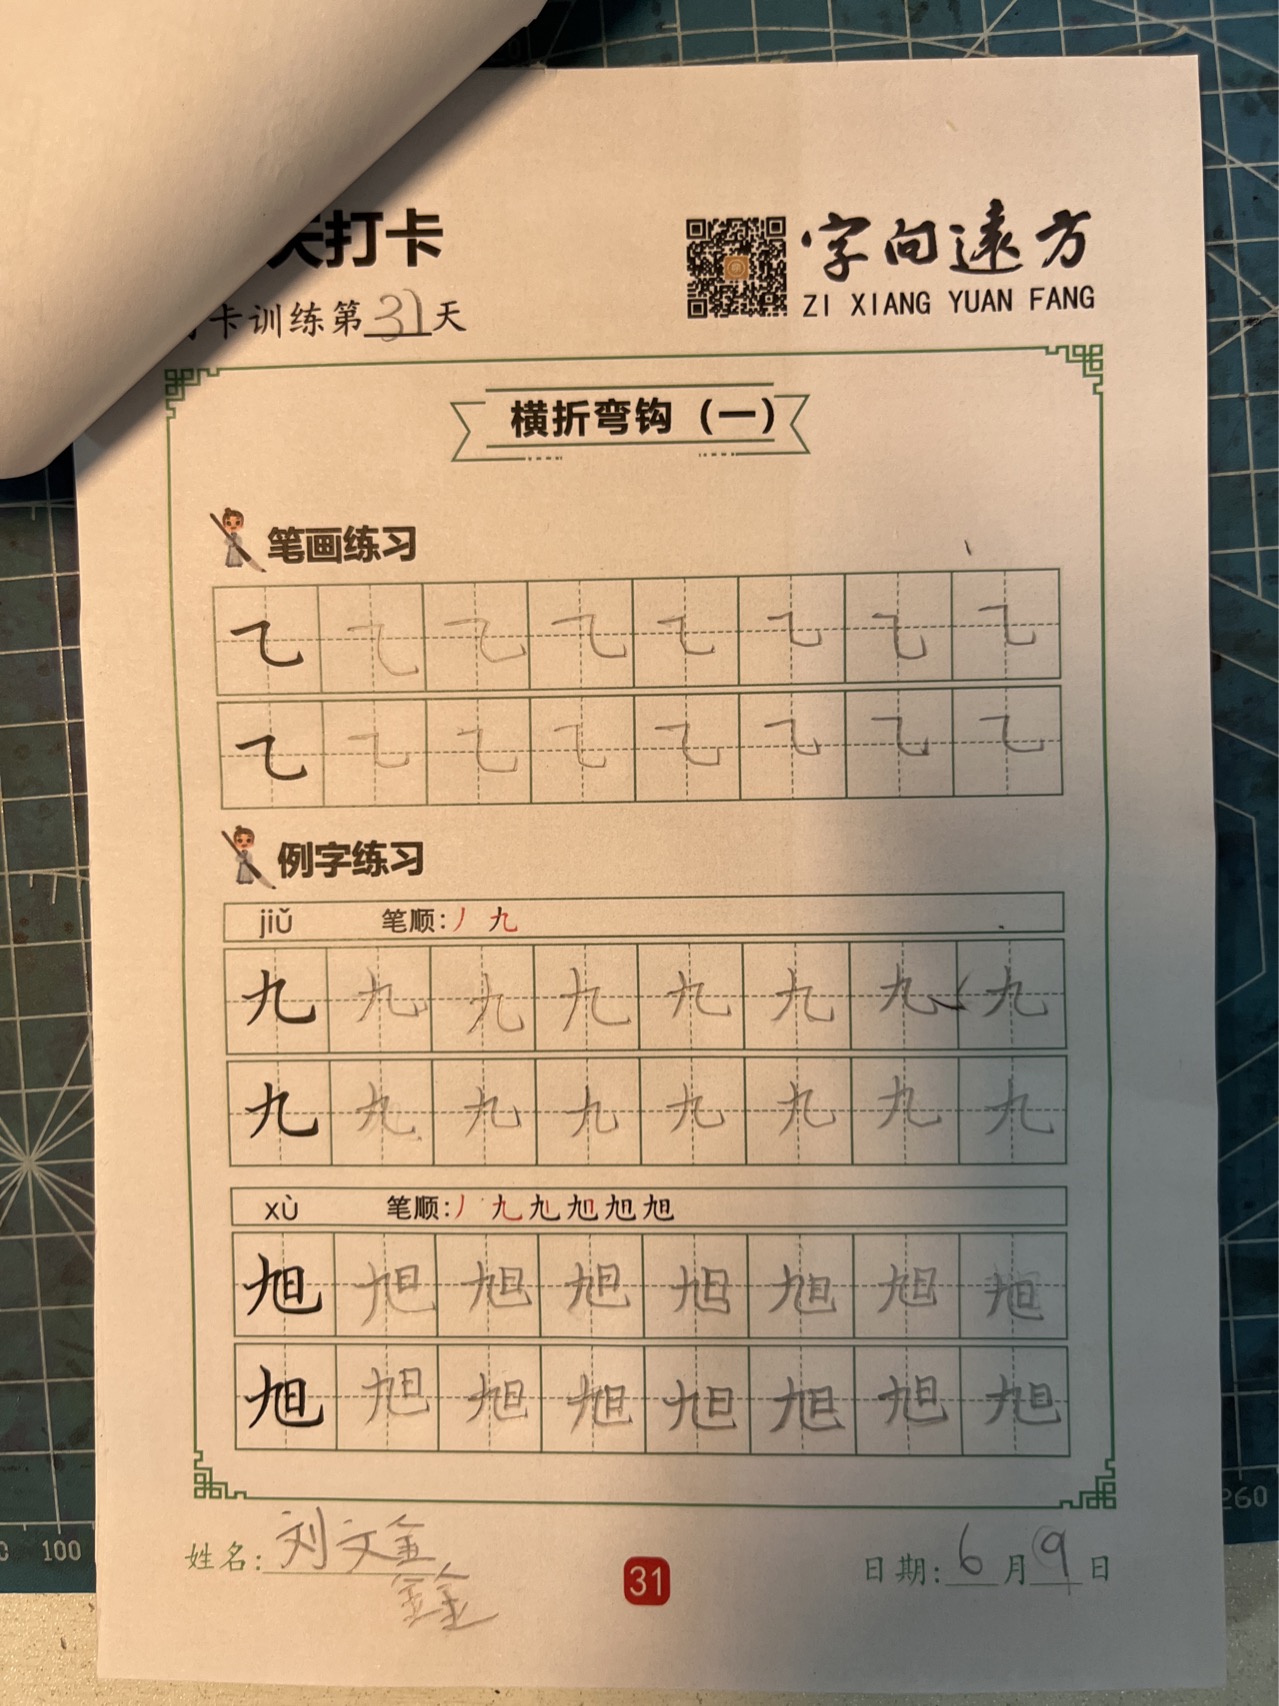 天打卡
字向遠方
ZI XIANG YUAN FANG
卡训练第31天
横折弯钩（一）
笔画练习
㇈ ㇈ ㇈ ㇈ ㇈ ㇈ ㇈ ㇈
㇈ ㇈ ㇈ ㇈ ㇈ ㇈ ㇈ ㇈
例字练习
jiǔ 笔顺:丿 九
九 九 九 九 九 九 九 九
九 九 九 九 九 九 九 九
xù 笔顺:丿 九 旭 旭 旭 旭
旭 旭 旭 旭 旭 旭 旭 旭
旭 旭 旭 旭 旭 旭 旭 旭
姓名:刘文鑫
31
日期:6月9日
100
260